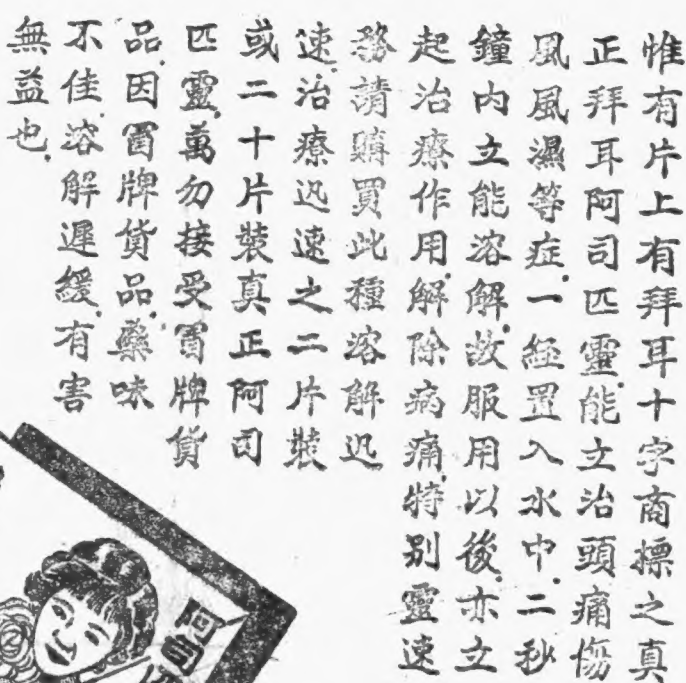 惟有片上有拜耳十字商標之真
正拜耳阿司匹靈.能立治頭痛傷
風風濕等症.一經置入水中.二秒
鐘内立能溶解.故服用以後.亦立
起治療作用.解除病痛.特别靈速
務請購買此種溶解迅
速.治療迅速之二片裝
或二十片裝真正阿司
匹靈.萬勿接受冒牌貨
品.因冒牌貨品.藥味
不佳.溶解遲緩.有害
無益也.
阿司